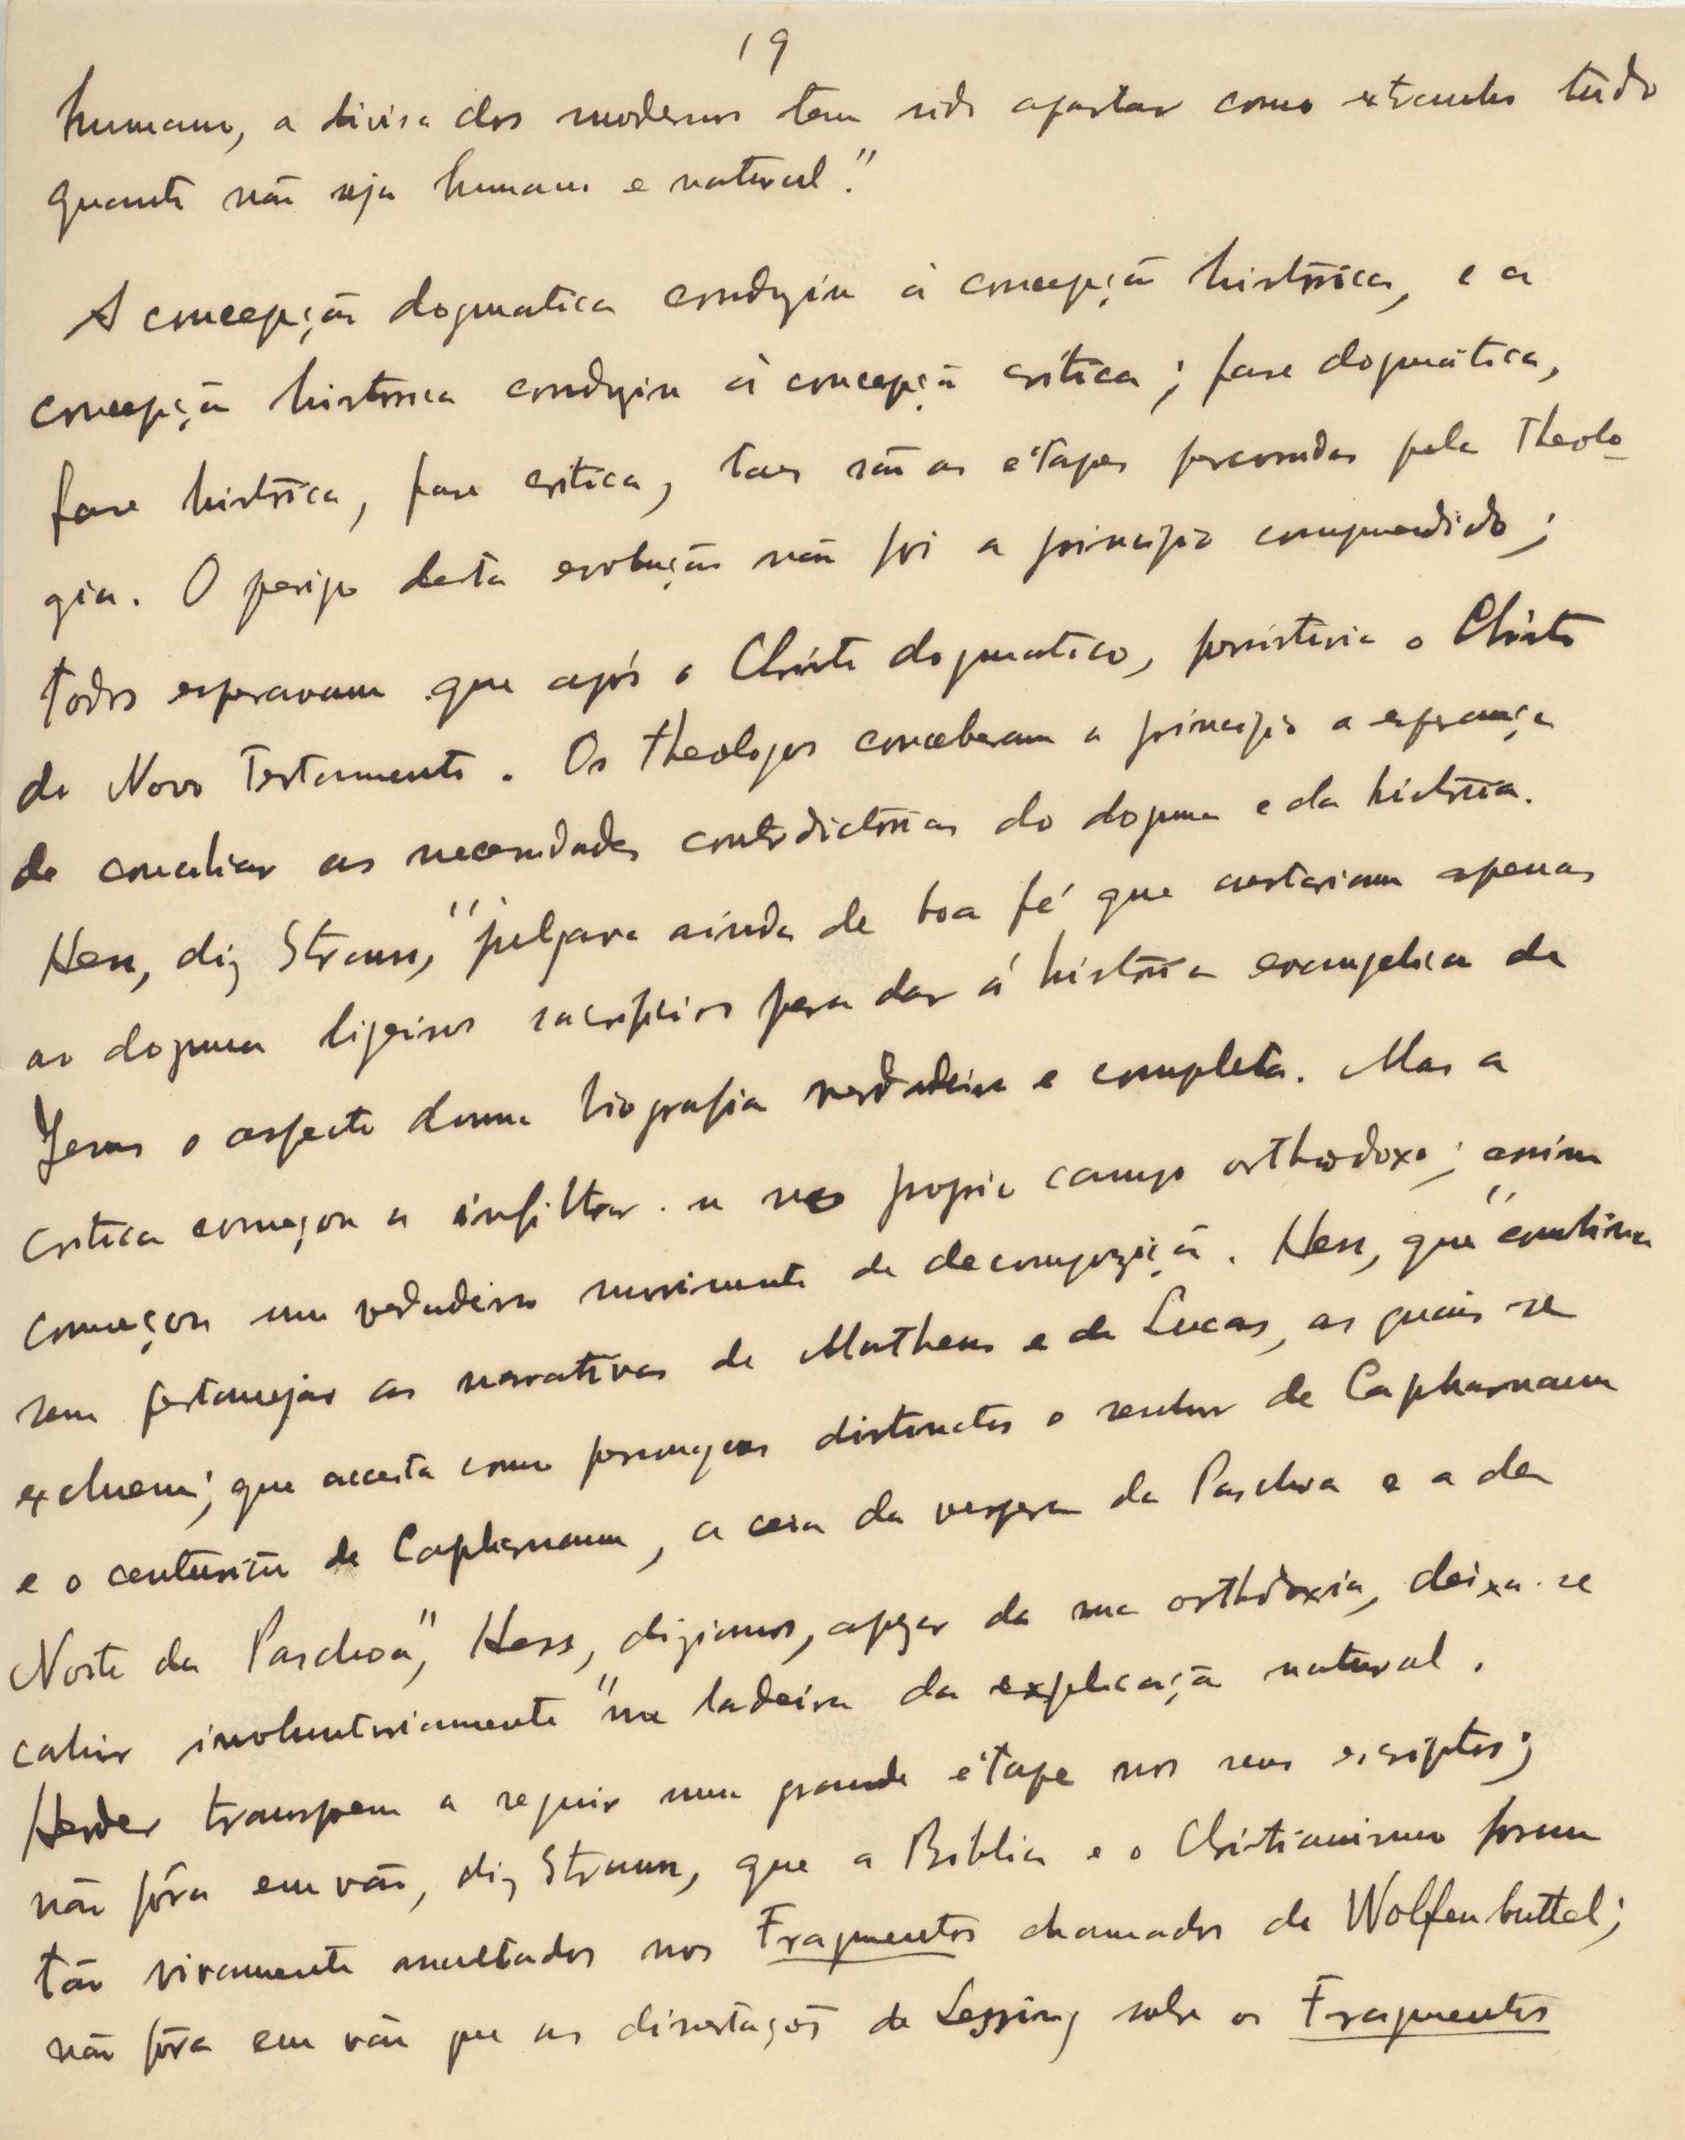 19
humano, a divisa dos modernos tem sido apartar como extranho tudo
quanto não seja humano e natural."
A concepção dogmatica conduziu á concepção histórica, e a
concepção histórica conduziu á concepção crítica; fase dogmática,
fase histórica, fase crítica, taes são as étapes percorridas pela Theolo-
gia. O perigo desta evolução não foi a principio comprendido;
todos esperavam que após o Christo dogmatico, persistiria o Christo
do Novo Testamento. Os theologos conceberam a principio a esperança
de conciliar as necessidades contradictórias do dogma e da história.
Hess, diz Strauss, "julgara ainda de boa fé que custariam apenas
ao dogma ligeiros sacrificios para dar á história evangelica de
Jesus o aspecto duma biografia verdadeira e completa. Mas a
critica começou a infiltrar-se no proprio campo orthodoxo; assim
começou um verdadeiro movimento de decomposição. Hess, que "combina
sem pestanejar as narrativas de Matheus e de Lucas, as quais se
excluem; que acceita como personagens distinctos o senhor de Capharnaum
e o centurião de Capharnaum, a ceia da vespera da Paschoa e a da
Noite da Paschoa", Hess, diziamos, apezar da sua orthodoxia, deixa-se
cahir involuntariamente "na ladeira da explicação natural.
Herder transpoem a seguir uma grande étape nos seus escriptos;
não fôra em vão, diz Strauss, que a Biblia e o Christianismo foram
tão vivamente assaltados nos Fragmentos chamados de Wolfenbuttel;
não fôra em vão que as dissertações de Lessing sobre os Fragmentos